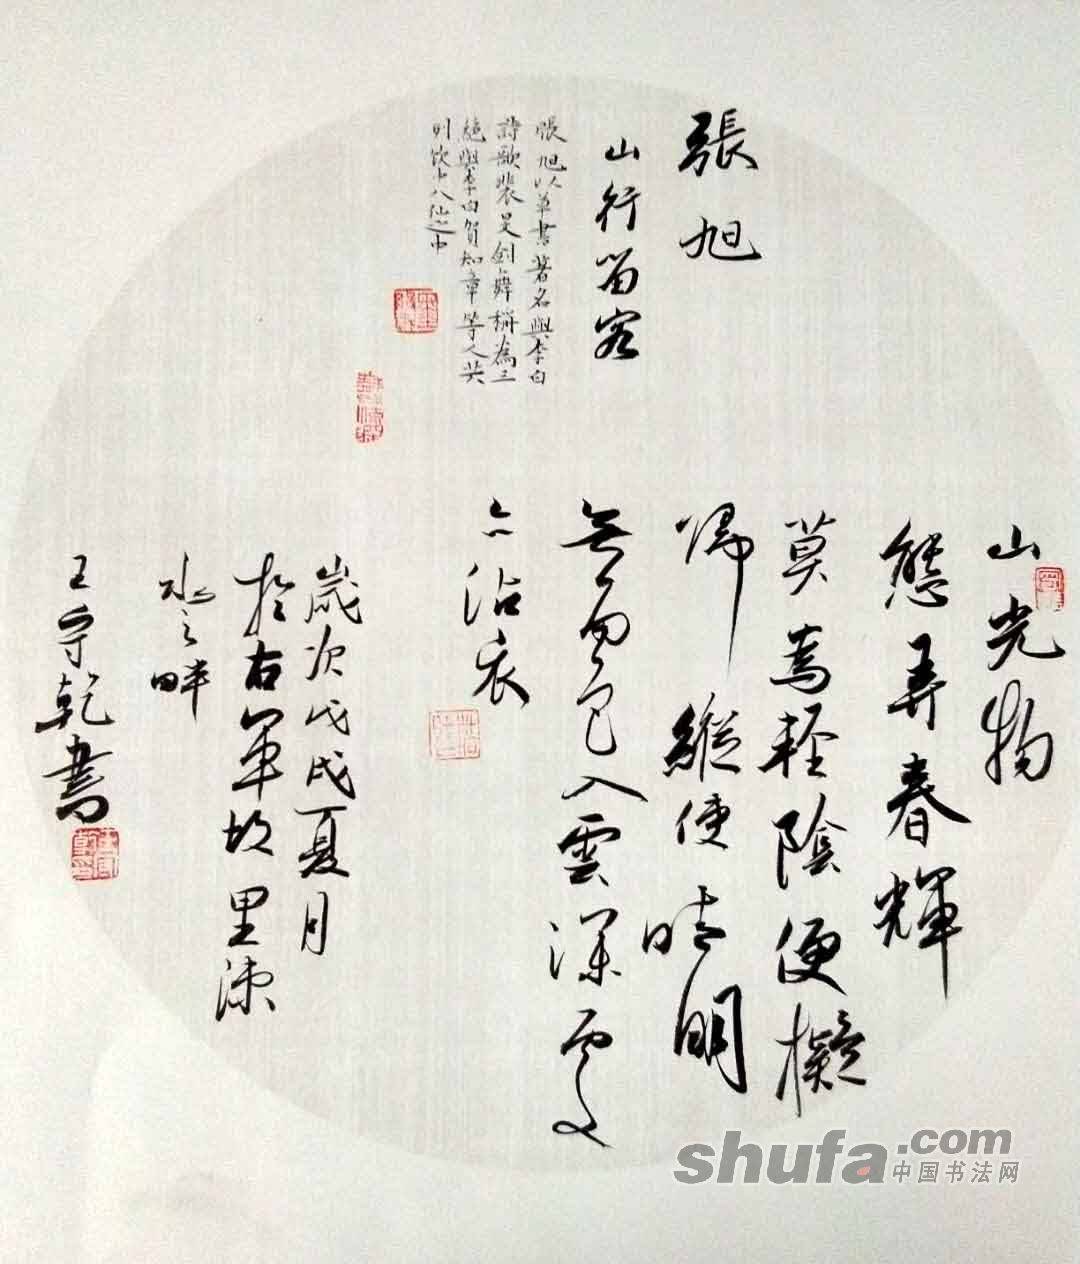 張旭
山行留客
張旭以草書著名與李白
詩歌裴旻劍舞稱為三
絕與李白賀知章等人共
列飲中八仙之中
山光物
態弄春輝
莫為輕陰便擬
歸縱使晴明
無雨色入雲深處
亦沾衣
歲次戊戌夏月
於右軍故里沭
水之畔
王守乾書
shufa.com
中国书法网